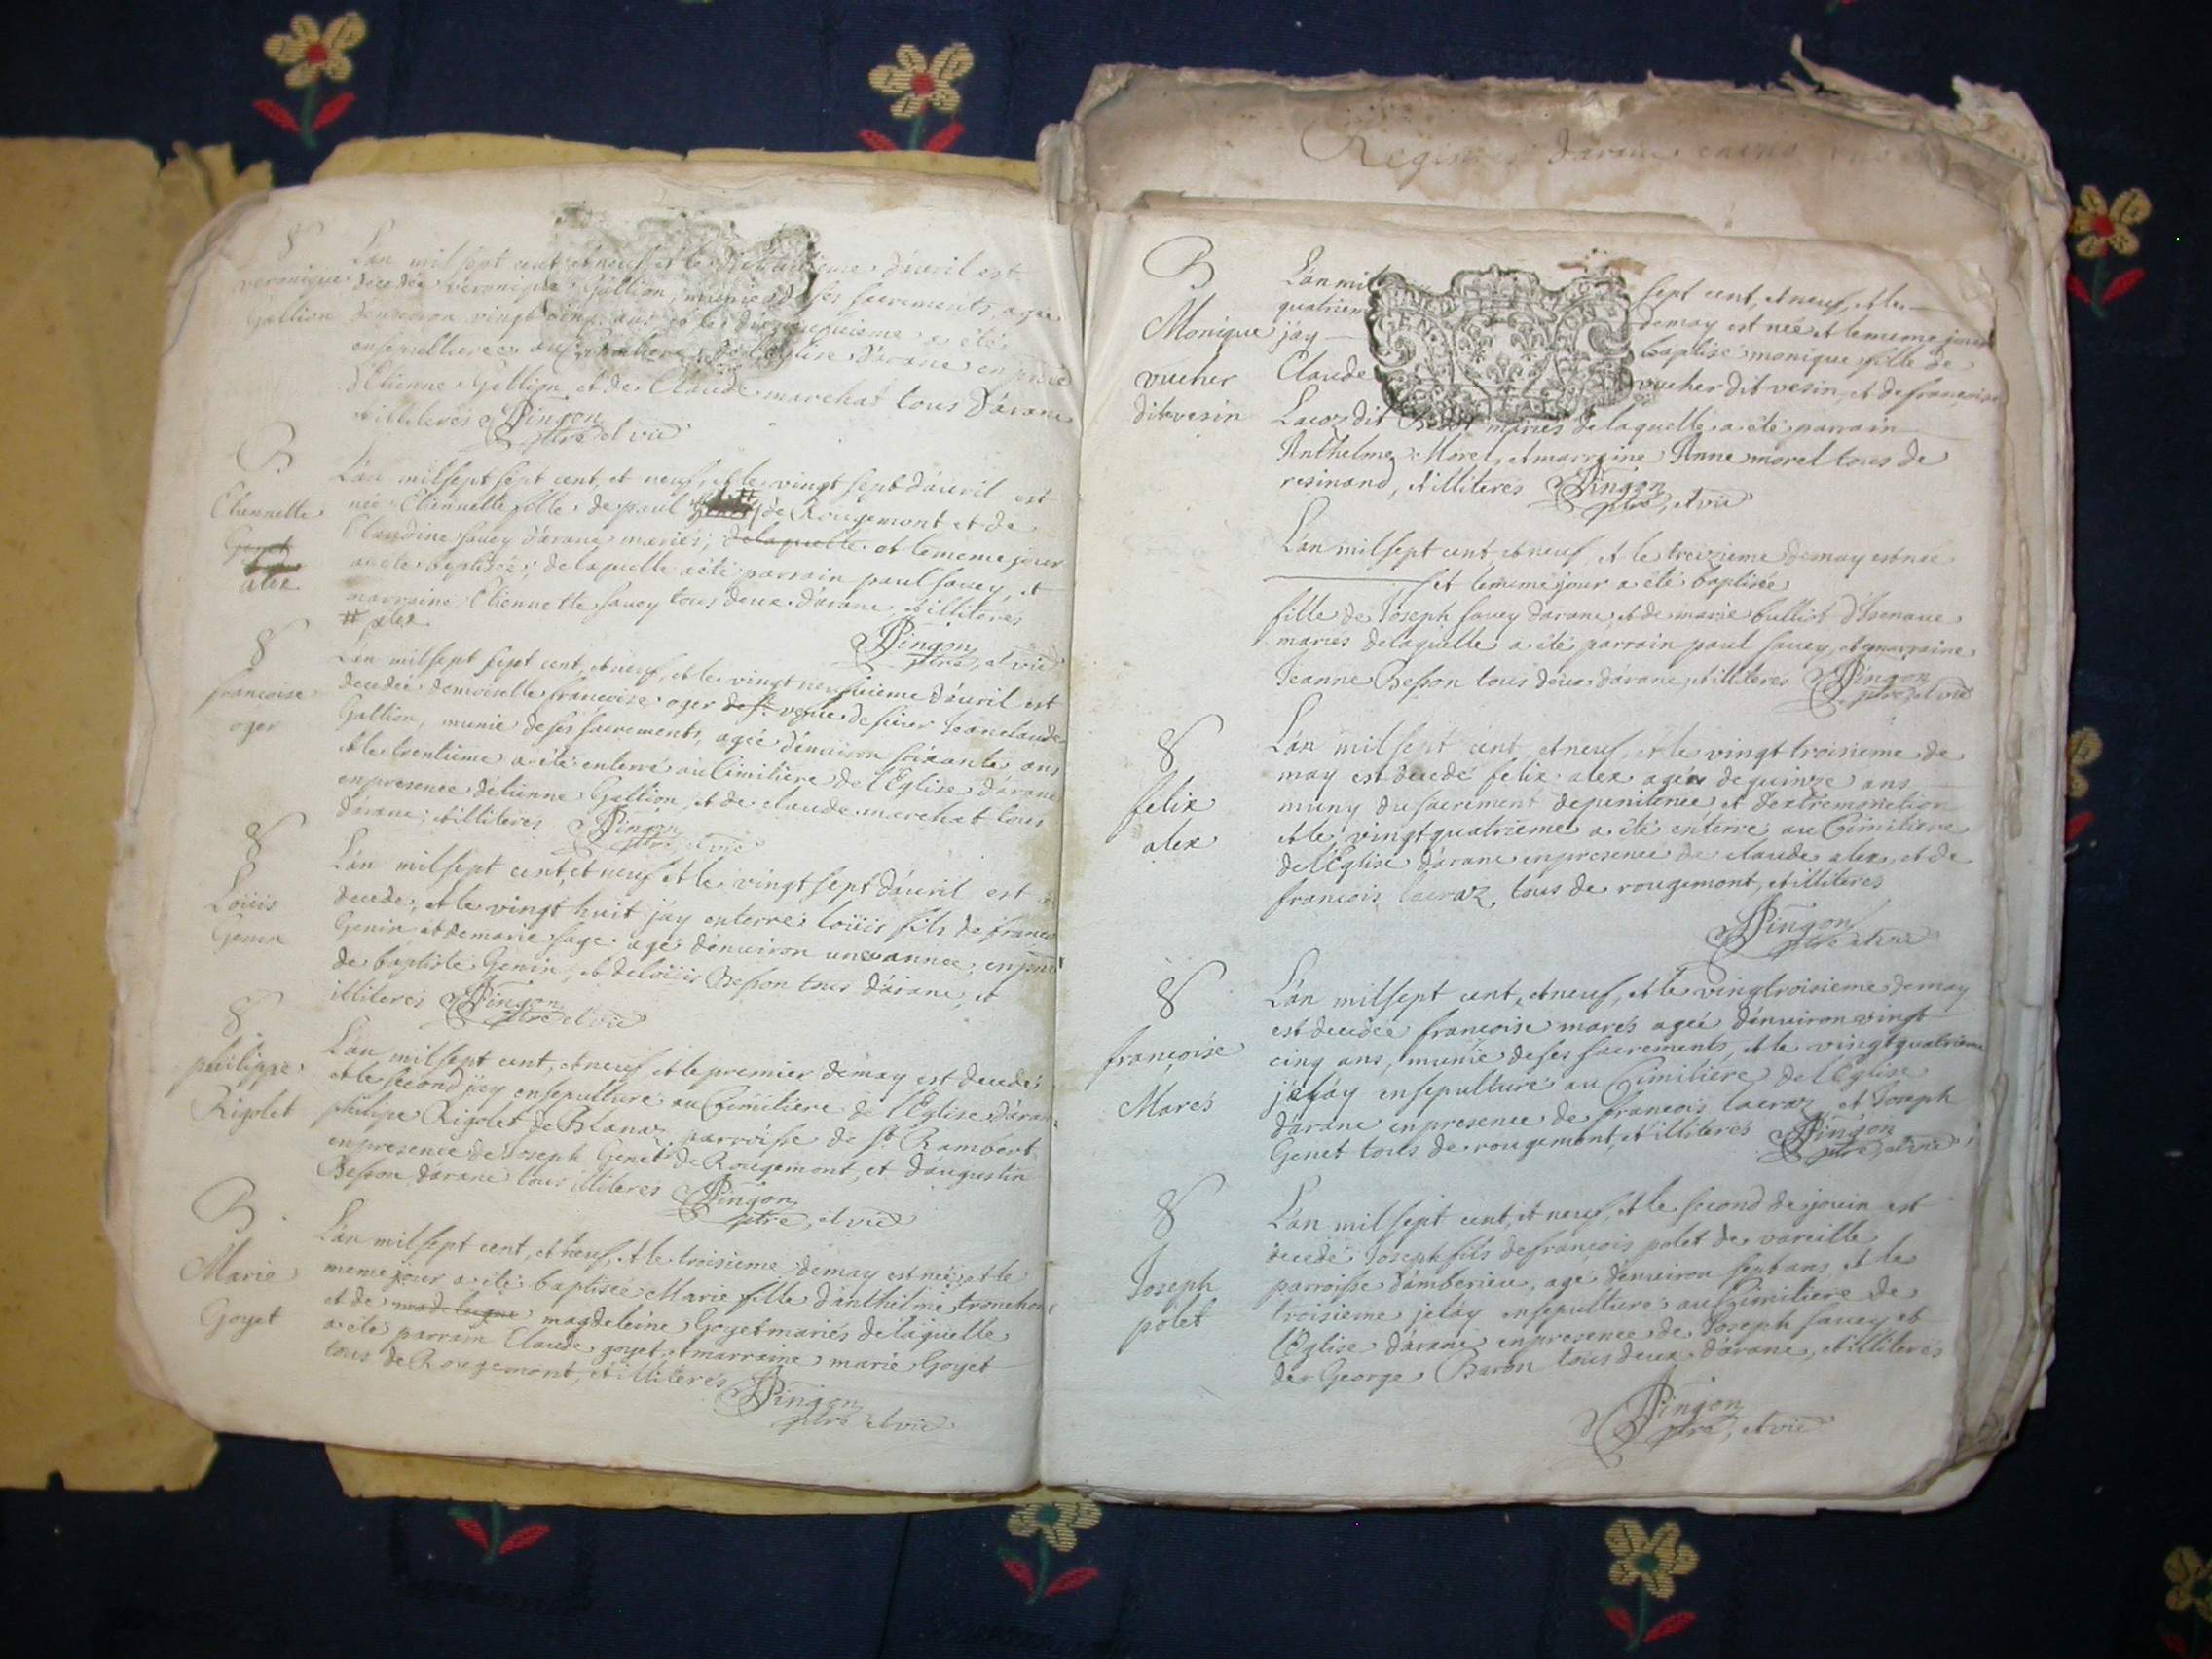 8
veronique
Gallion
L'an mil sept cent et neuf, et le d'avril est
decedée veronique Gallion, munie de ses sacrements, agée
d'environ vingt cinq ans et le a été
ensepulturée au Cimitiere de l'Eglise d'arane en
d'Etienne Gallion et de Claude marchat tous d'arane
et illiteres Pingon
ptre et vic
B
Etiennette
Genet
alex
L'an mil sept sept cent, et neuf, et le vingt sept d'avril est
née Etiennette fille de paul # de Rougemont et de
Claudine savey d'arane mariés; delaquelle et le meme jour
a été baptisée; de laquelle a été parrain paul savey, et
marraine Etiennette savey tous deux d'arane et illiteres
# alex
Pingon
ptre, et vic
8
francoise
oger
L'an mil sept sept cent, et neuf, et le vingt neufvieme d'avril est
decedée demoiselle francoise oger veuve de sieur Jean claude
Gallion, munie de ses sacrements, agée d'environ soixante ans
et le trentieme a été enterré au Cimitiere de l'Eglise d'arane
en presence d'etienne Gallion, et de claude marchat tous
d'arane, et illiteres Pingon
ptre, et vic
8
Loüis
Genin
L'an mil sept cent, et neuf et le vingt sept d'avril est
decede, et le vingt huit j'ay enterré loüis fils de francois
Genin et de marie sage agé d'environ une année, en
de baptiste Genin, et de loüis Besson tous d'arane, et
illiteres Pingon
ptre et vic
8
philippe
Rigolet
L'an mil sept cent, et neuf et le premier de may est decedé
et le second j'ay ensepulturé au Cimitiere de l'Eglise d'arane
philipe Rigolet de Blanaz parroisse de St Rambert
en presence de Joseph Genet de Rougemont, et d'augustin
Besson d'arane tous illiteres Pingon
ptre, et vic
B
Marie
Goyet
L'an mil sept cent, et neuf, et le troisieme de may est née, et le
meme jour a été baptisée Marie fille d'anthelme tronchon
et de magdeleine Goyet mariés de laquelle
a été parrain Claude goyet, et marraine marie Goyet
tous de Rougemont, et illiteres Pingon
ptre et vic
Registre d'arane
B
Monique
vucher
dit vesin
L'an mil sept cent, et neuf, et le
quatriem de may est née et le meme jour
j'ay baptisé monique fille de
Claude vucher dit vesin, et de francoise
Lacoz dit mariés de laquelle a été parrain
Anthelme Morel, et marraine Anne morel tous de
resinand, et illiteres Pingon
ptre, et vic
L'an mil sept cent et neuf, et le treizieme de may est née
et le meme jour a été baptisée
fille de Joseph savey d'arane, et de marie bulliot d'Isenave
mariés de laquelle a été parrain paul savey, et marraine
Jeanne Besson tous deux d'arane, et illiteres Pingon
ptre, et vic
8
felix
alex
L'an mil sept cent, et neuf, et le vingt troisieme de
may est decedé felix alex agé de quinze ans
muny du sacrement de penitence et d'extremonction
et le vingt quatrieme a été enterré au Cimitiere
de l'Eglise d'arane en presence de claude alex, et de
francois lacraz tous de rougemont, et illiteres
Pingon
ptre et vic
8
françoise
Marés
L'an mil sept cent, et neuf, et le vingtroisieme de may
est decedée françoise marés agée d'environ vingt
cinq ans, munie de ses sacrements, et le vingt quatrieme
je l'ay ensepulturé au Cimitiere de l'Eglise
d'arane en presence de francois lacraz, et Joseph
Genet tous de rougemont, et illiteres Pingon
ptre, et vic
8
Joseph
polet
L'an mil sept cent, et neuf, et le second de jouin est
decedé Joseph fils de francois polet de vareille
parroisse d'amberieu, agé d'environ sept ans et le
troisieme je l'ay ensepulturé au Cimitiere de
l'Eglise d'arane en presence de Joseph savey et
de George Baron tous deux d'arane, et illiteres
Pingon
ptre, et vic